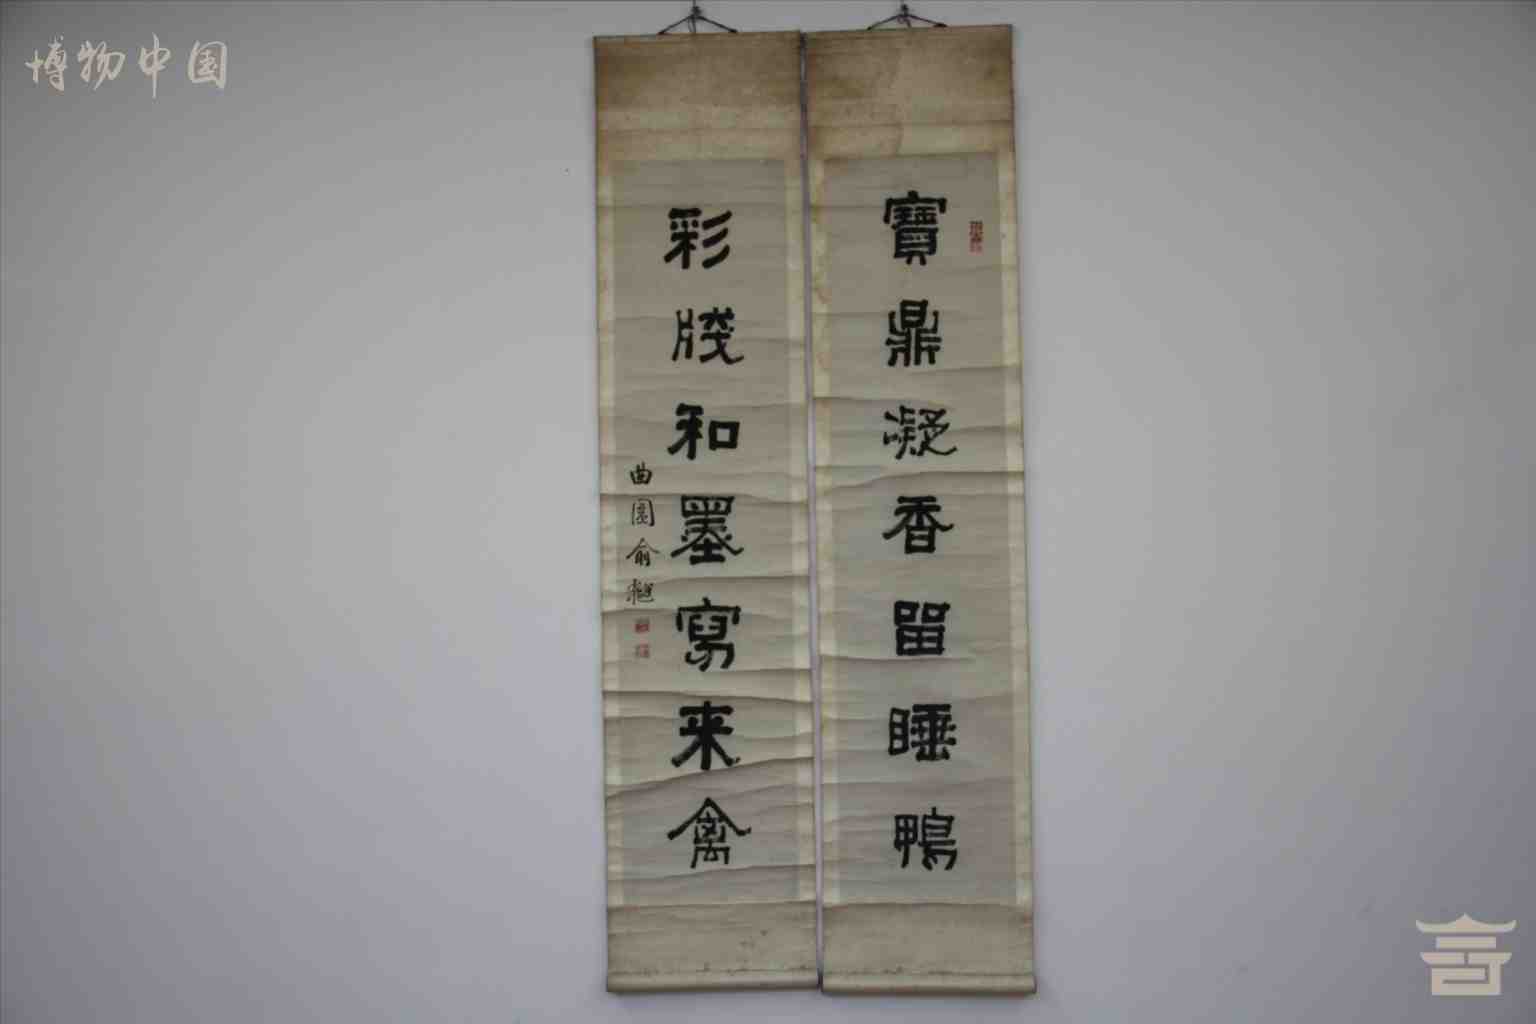 博物中国
寶鼎凝香留睡鴨
彩牋和墨寫来禽
曲園俞樾